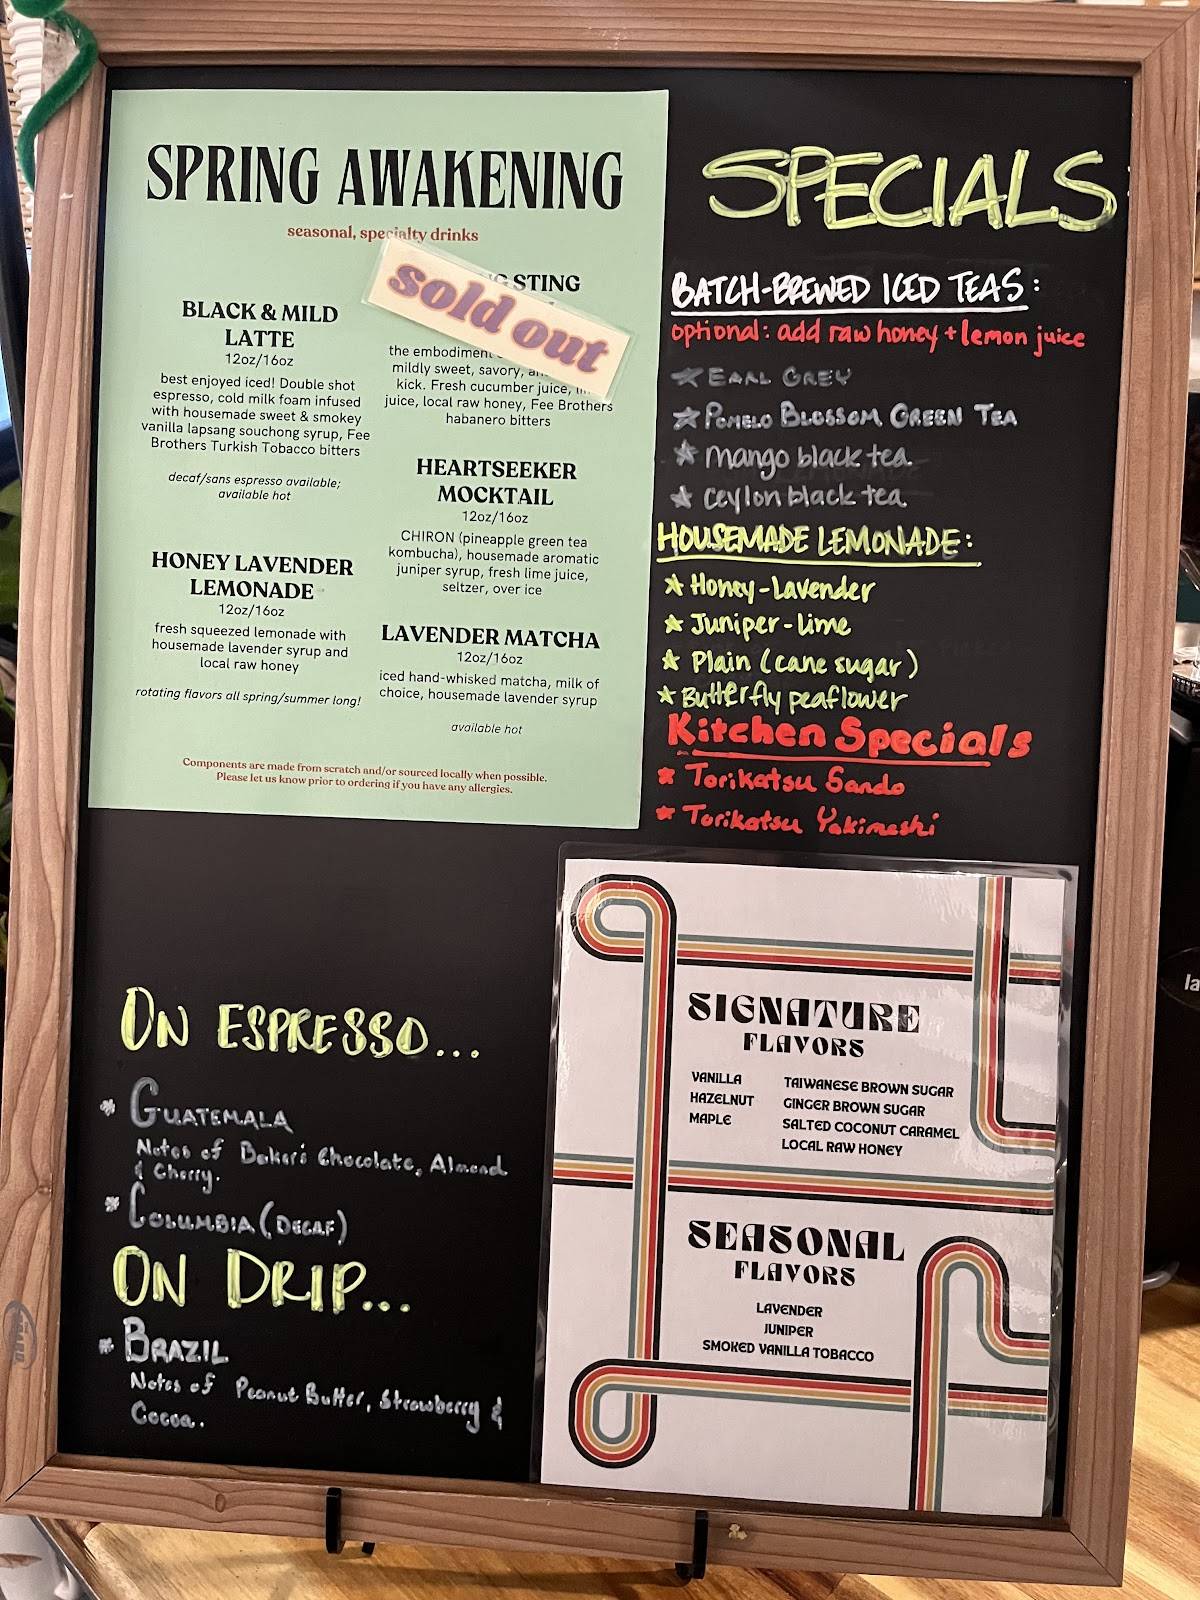 SPRING AWAKENING
seasonal, specialty drinks
BLACK & MILD
LATTE
12oz/16oz
best enjoyed iced! Double shot
espresso, cold milk foam infused
with housemade sweet & smokey
vanilla lapsang souchong syrup, Fee
Brothers Turkish Tobacco bitters
decaf/sans espresso available;
available hot
HONEY LAVENDER
LEMONADE
12oz/16oz
fresh squeezed lemonade with
housemade lavender syrup and
local raw honey
rotating flavors all spring/summer long!
STING
sold out
the embodiment
mildly sweet, savory,
kick. Fresh cucumber juice,
juice, local raw honey, Fee Brothers
habanero bitters
HEARTSEEKER
MOCKTAIL
12oz/16oz
CHIRON (pineapple green tea
kombucha), housemade aromatic
juniper syrup, fresh lime juice,
seltzer, over ice
LAVENDER MATCHA
12oz/16oz
iced hand-whisked matcha, milk of
choice, housemade lavender syrup
available hot
Components are made from scratch and/or sourced locally when possible.
Please let us know prior to ordering if you have any allergies.
SPECIALS
BATCH-BREWED ICED TEAS:
optional: add raw honey + lemon juice
EARL GREY
POMELO BLOSSOM GREEN TEA
mango black tea
Ceylon black tea
HOUSEMADE LEMONADE:
Honey-Lavender
Juniper-Lime
Plain (cane sugar)
Butterfly peaflower
Kitchen Specials
Torikatsu Sando
Torikatsu Yakimeshi
ON ESPRESSO...
GUATEMALA
Notes of Baker's Chocolate, Almond
& Cherry.
COLUMBIA (DECAF)
ON DRIP...
BRAZIL
Notes of Peanut Butter, Strawberry &
Cocoa.
SIGNATURE
FLAVORS
VANILLA
HAZELNUT
MAPLE
TAIWANESE BROWN SUGAR
GINGER BROWN SUGAR
SALTED COCONUT CARAMEL
LOCAL RAW HONEY
SEASONAL
FLAVORS
LAVENDER
JUNIPER
SMOKED VANILLA TOBACCO
la